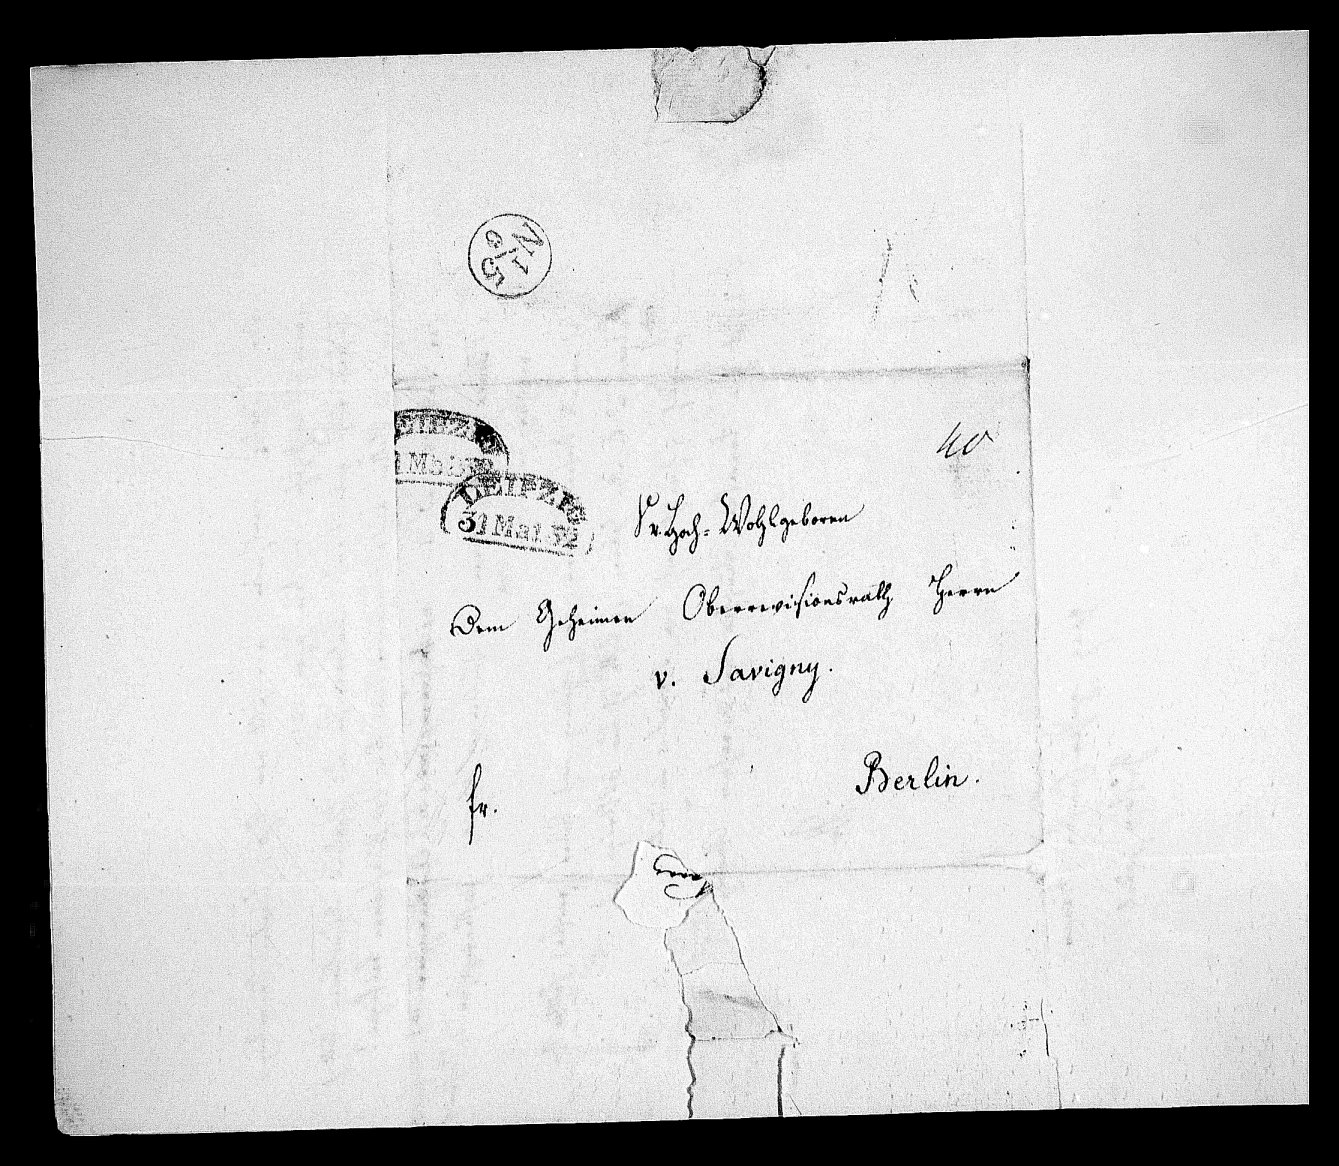 N1
5/6
LEIPZIG
31 Mai 32
LEIPZIG
31 Mai 32
Sr. Hoch-Wohlgeboren
Dem Geheimen Oberrevisionsrath Herrn
v. Savigny.
Berlin.
fr.